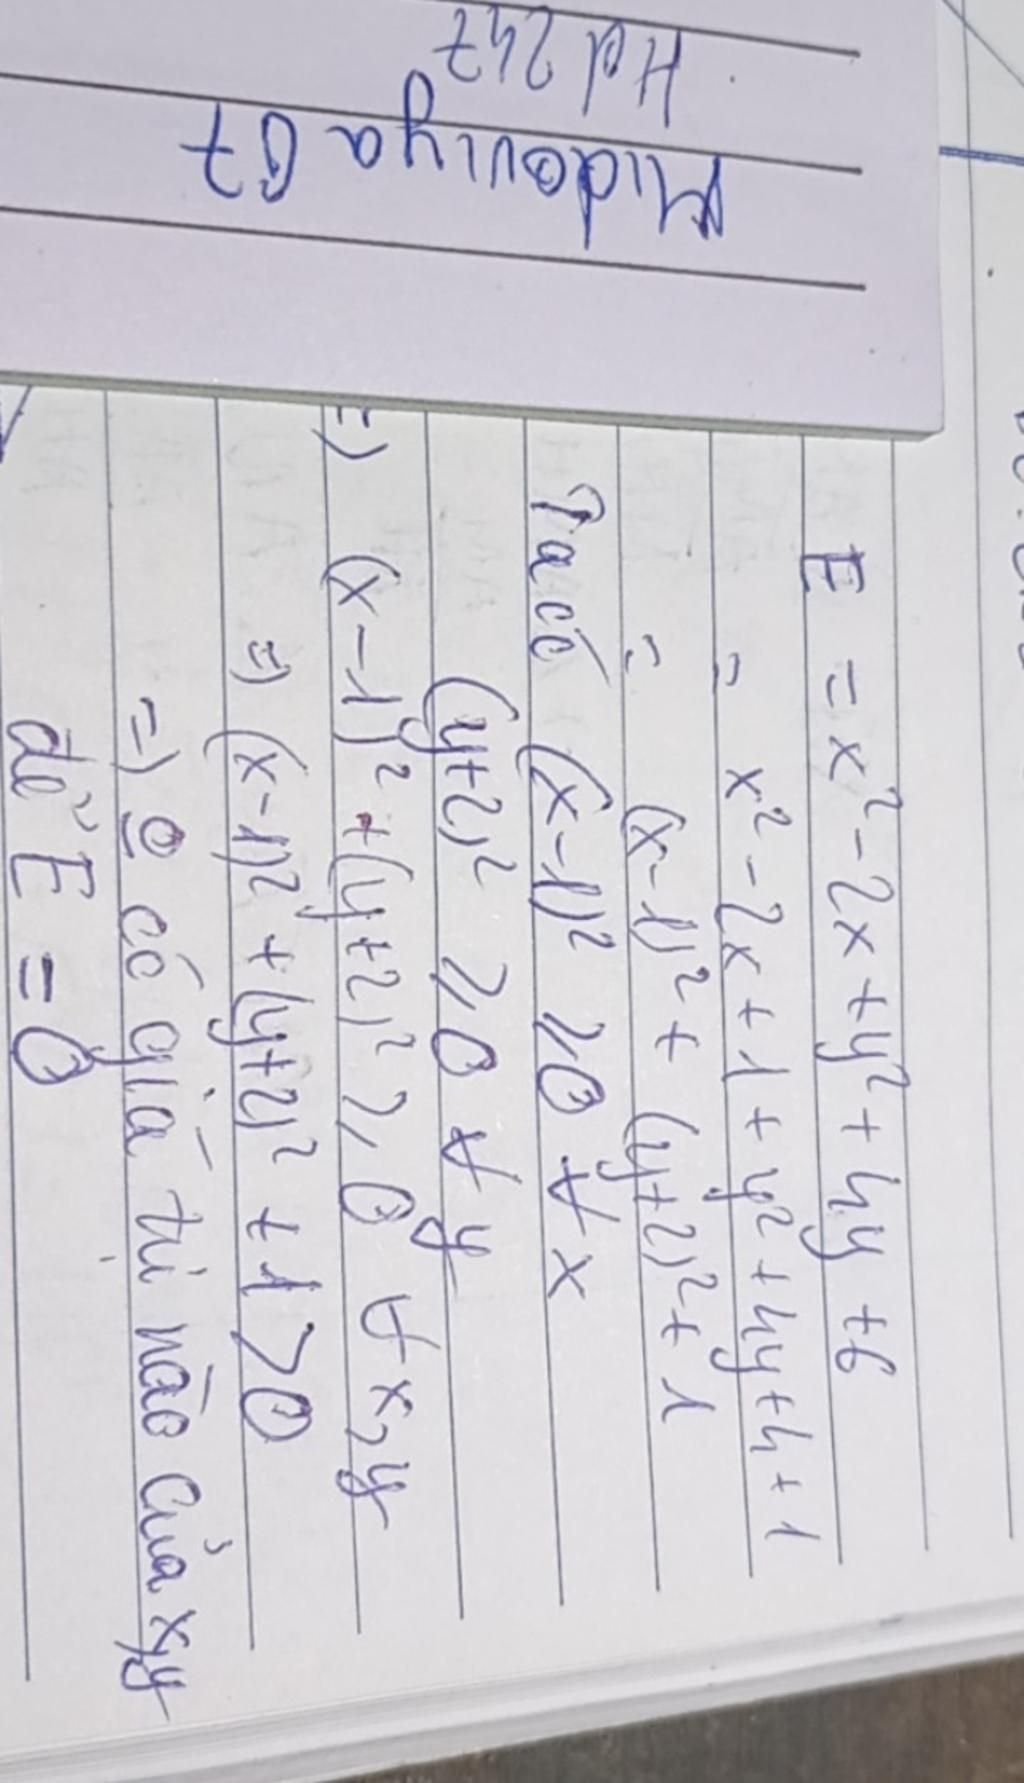 Hd 247
Midoviya 07
E = x² - 2x + y² + 4y + 6
= x² - 2x + 1 + y² + 4y + 4 + 1
= (x-1)² + (y+2)² + 1
Ta có (x-1)² ≥ 0 ∀ x
(y+2)² ≥ 0 ∀ y
=) (x-1)² + (y+2)² ≥ 0 ∀ x, y
=) (x-1)² + (y+2)² + 1 > 0
=) ο có giá trị nào của x,y
để E = 0